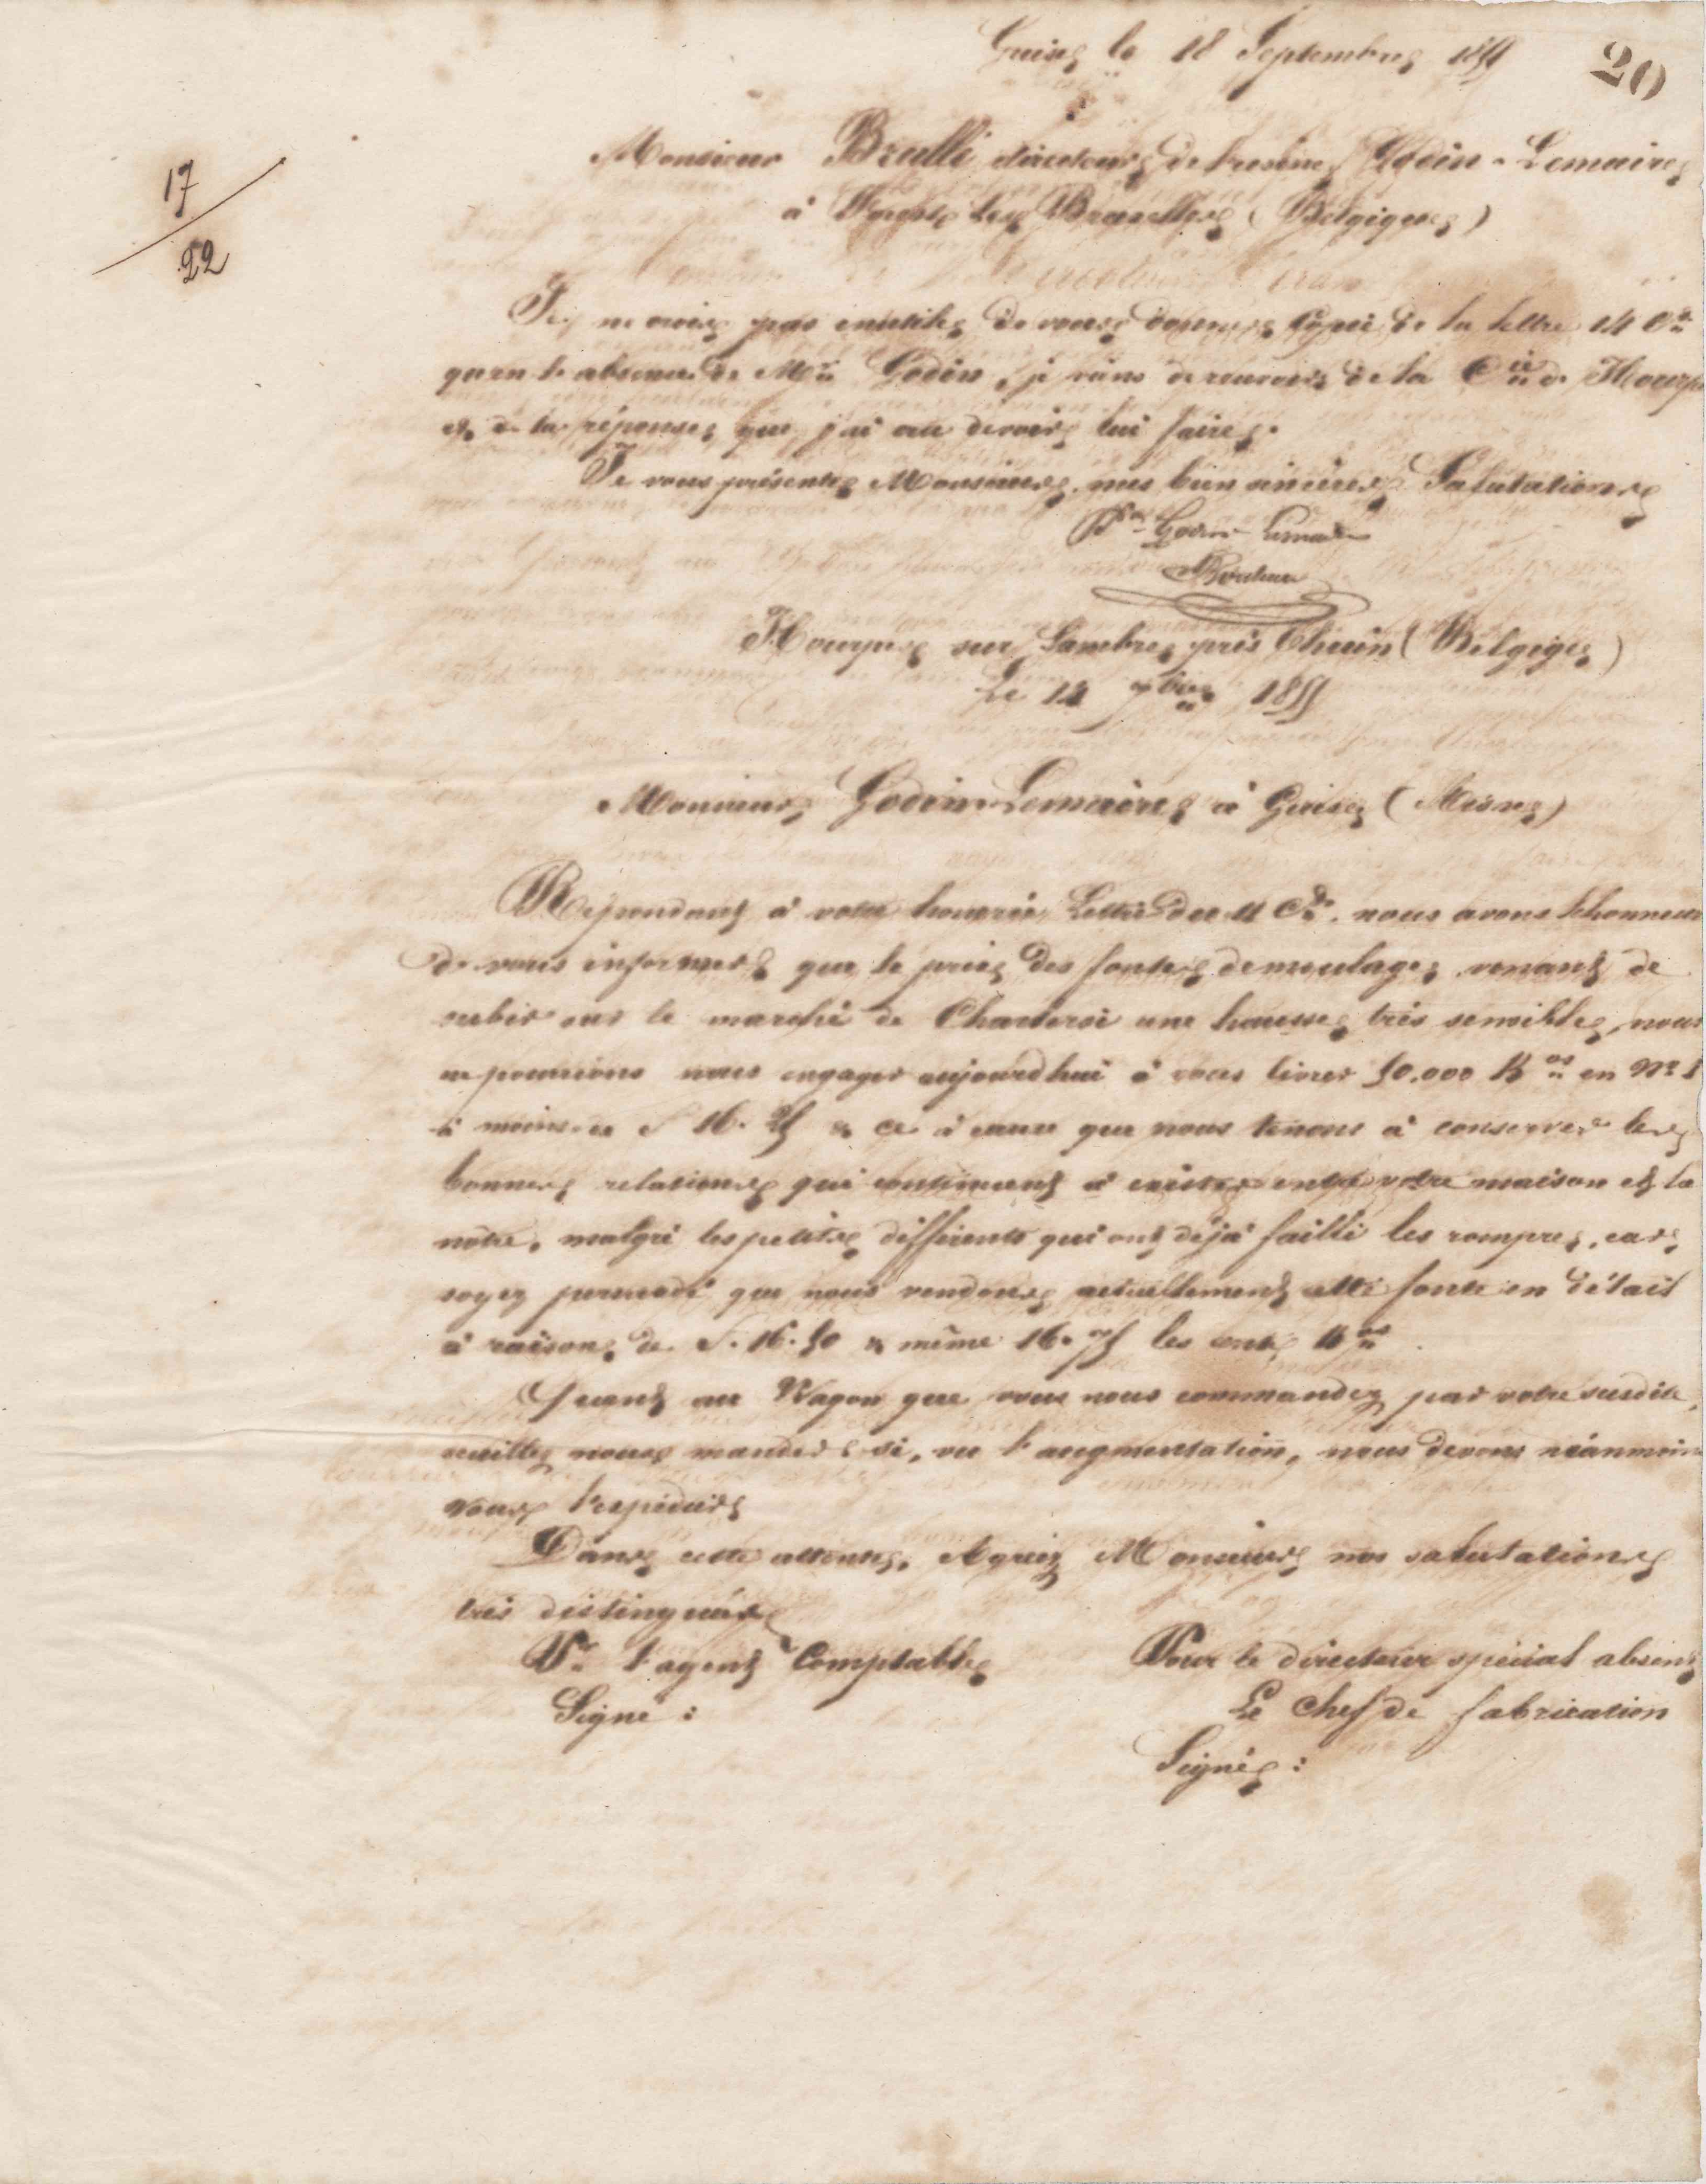 Guise le 18 Septembre 1855
20
17
22
Monsieur Brullé directeur de l'usine Godin-Lemaire
à Forest lez Bruxelles (Belgique)
Je ne crois pas inutile de vous donner Copie de la lettre 14 Ct
qu'en l'absence de Mr Godin, je viens de recevoir de la Cie de Hourpes
& de la réponse, que j'ai cru devoir lui faire.
Je vous présente Monsieur, mes bien sincères Salutations
Pr Godin-Lemaire
Hourpes sur Sambre près Thuin (Belgique)
Le 14 7bre 1855
Monsieur Godin-Lemaire à Guise (Aisne)
Répondant à votre honorée Lettre du 11 Ct. nous avons l'honneur
de vous informer que le prix des fontes de moulage, venant de
subir sur le marché de Charleroi une hausse très sensible, nous
ne pourrions nous engager aujourd'hui à vous livrer 50.000 Kos en No 1
à moins de f 16.25 & ce à cause que nous tenons à conserver les
bonnes relations qui continuent à exister entre votre maison et la
nôtre, malgré les petits différents qui ont déjà failli les rompre, car
soyez persuadé que nous vendons actuellement cette fonte en détail
à raison de f. 16.50 & même 16.75 les cent Kos.
Quant au Wagon que vous nous commandez par votre susdite,
veuillez nous mander si, vu l'augmentation, nous devons néanmoins
vous l'expédier
Dans cette attente, Agréez Monsieur nos salutations
très distinguées
Pr l'agent Comptable
Signé :
Pour le directeur spécial absent
Le Chef de fabrication
Signé :